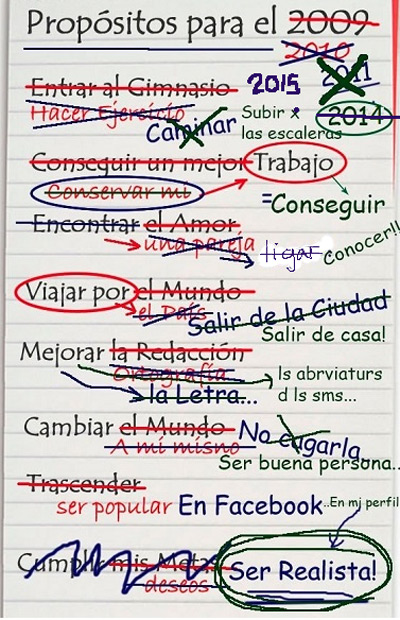 Propósitos para el 2009
2010
2015 2011
2014
Entrar al Gimnasio
Hacer Ejercicio
Caminar
Subir x
las escaleras
Conseguir un mejor Trabajo
Conservar mi
=Conseguir
Encontrar el Amor
una pareja
ligar
Conocer!!
Viajar por el Mundo
el País
Salir de la Ciudad
Salir de casa!
Mejorar la Redacción
Ortografía
la Letra...
ls abrviaturs
d ls sms...
Cambiar el Mundo
A mi mismo
No cagarla
Ser buena persona..
Trascender
ser popular En Facebook ..En mi perfil
Cumplir mis Metas
deseos
Ser Realista!